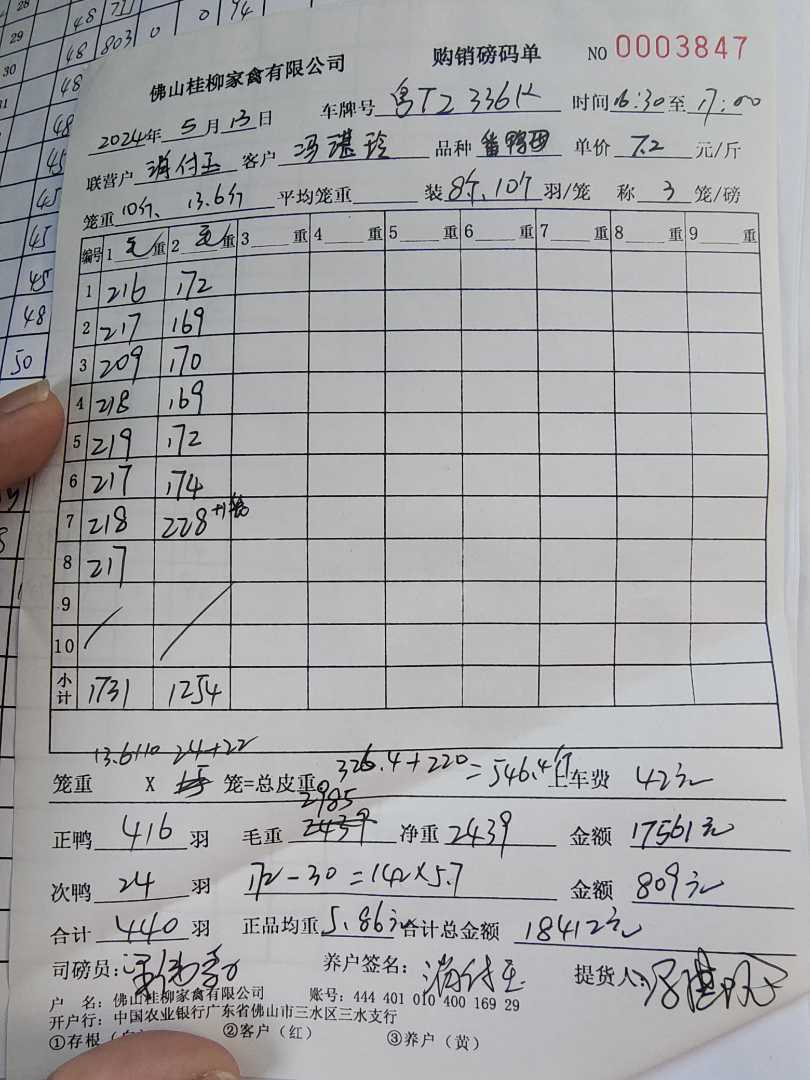 28 48
29 48 803 0 0 94
30 48
31 48
48
45
45
45
45
48
50
佛山桂柳家禽有限公司 购销磅码单 NO 0003847
2024年 5 月 13 日 车牌号 粤TZ336K 时间 16:30 至 17:00
联营户 客户 冯谌玲 品种 番鸭母 单价 7.2 元/斤
笼重 10斤、13.6斤 平均笼重 装 8个,10个 羽/笼 称 3 笼/磅
编号 1 毛 重 2 毛 重 3 重 4 重 5 重 6 重 7 重 8 重 9 重
1 216 172
2 217 169
3 209 170
4 218 169
5 219 172
6 217 174
7 218 228
8 217
9
10
小计 1731 1254
13.6+10 24+22 326.4+220=546.4斤
笼重 X 笼=总皮重 上车费 42元
正鸭 416 羽 毛重 2985 净重 2439 金额 17561元
次鸭 24 羽 172-30=142×5.7 金额 809元
合计 440 羽 正品均重 5.86 合计总金额 18412元
司磅员: 养户签名: 提货人:
户 名: 佛山桂柳家禽有限公司 账号: 444 401 010 400 169 29
开户行: 中国农业银行广东省佛山市三水区三水支行
①存根 ②客户（红） ③养户（黄）